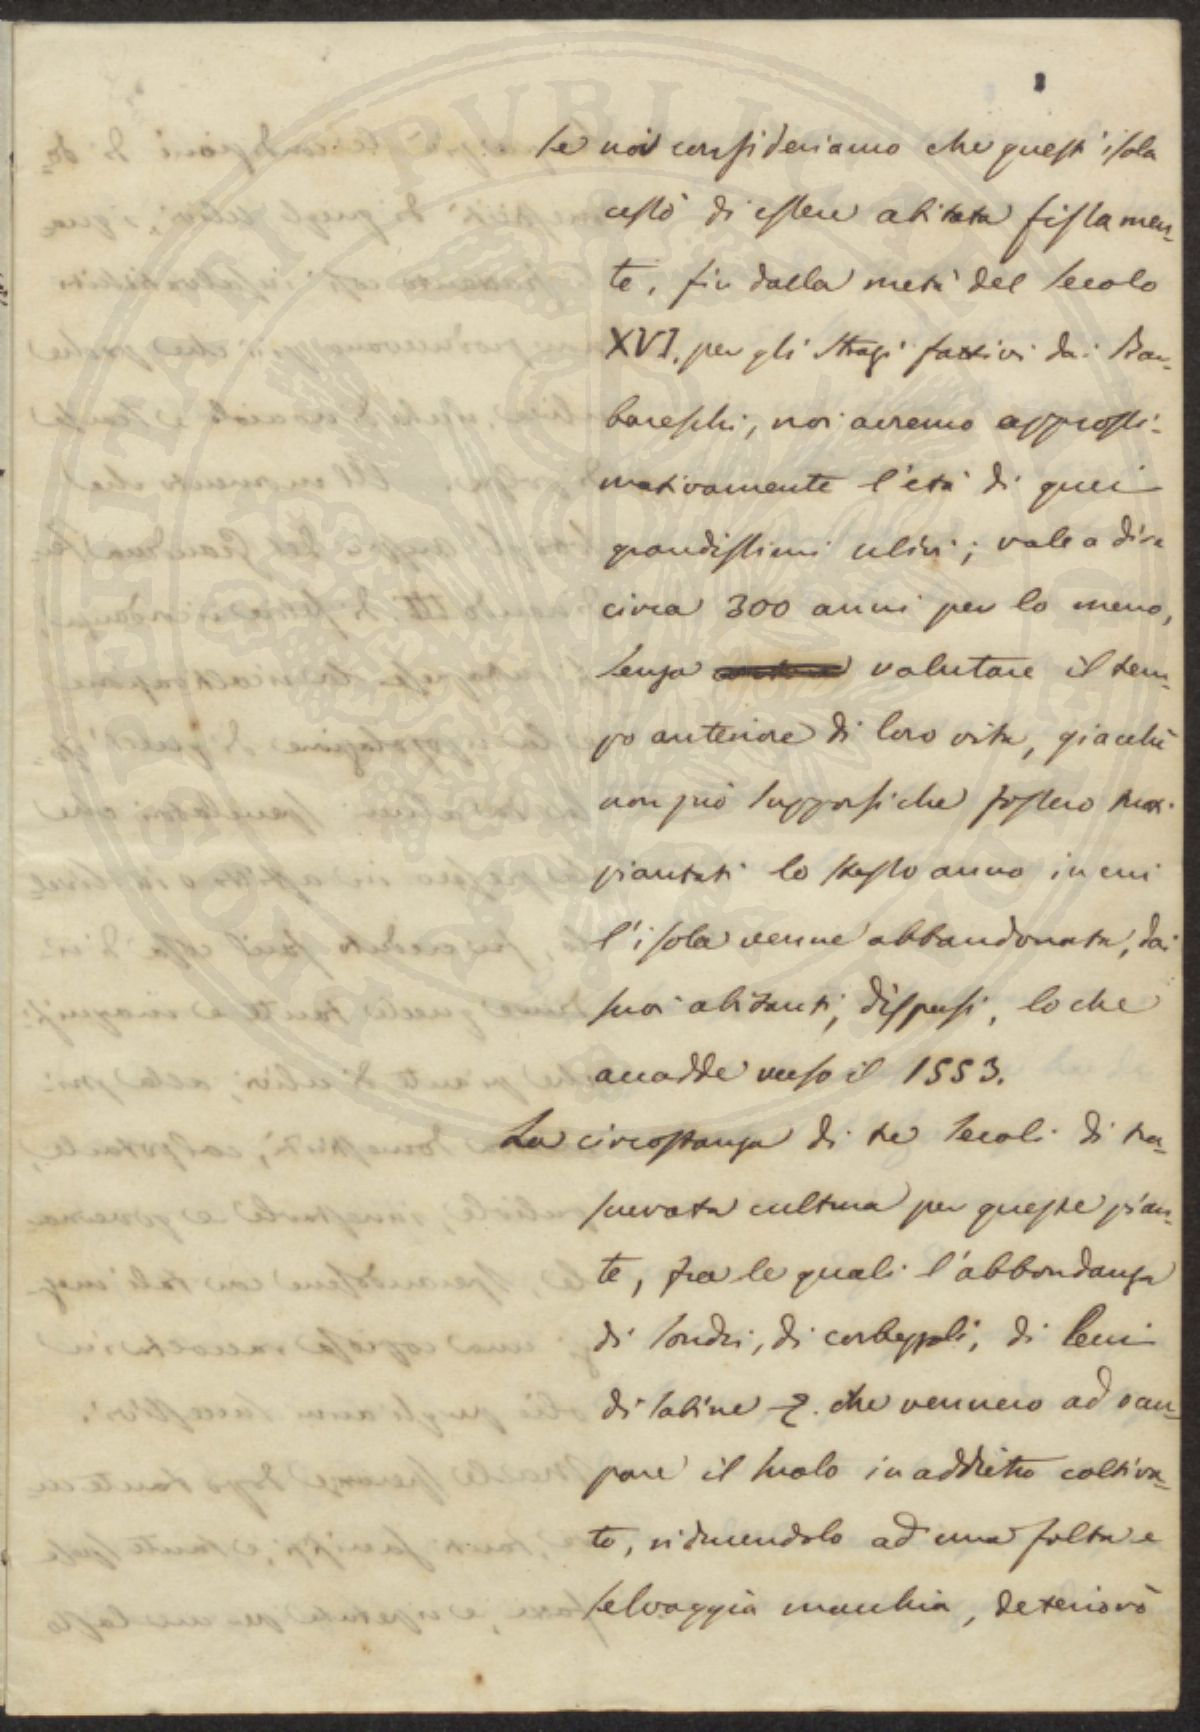 Se noi consideriamo che quest'isola
cessò di essere abitata fissamen-
te, fin dalla metà del secolo
XVI. per gli stragi fattivi dai Bar-
bareschi, noi avremo approssi-
mativamente l'età di quei
grandissimi ulivi; vale a dire
circa 300 anni per lo meno,
senza valutare il tem-
po anteriore di loro vita, giacchè
non può supporsi che fossero tra-
piantati lo stesso anno in cui
l'isola venne abbandonata, dai
suoi abitanti, dispersi, lo che
accadde verso il 1553.
La circostanza di tre secoli di tra-
scurata cultura per queste pian-
te, fra le quali l'abbondanza
di sondri, di corbezzoli, di Lecci
di sabine &. che vennero ad occu-
pare il suolo in addietro coltiva-
to, riducendolo ad una folta e
selvaggia macchia, deteriorò